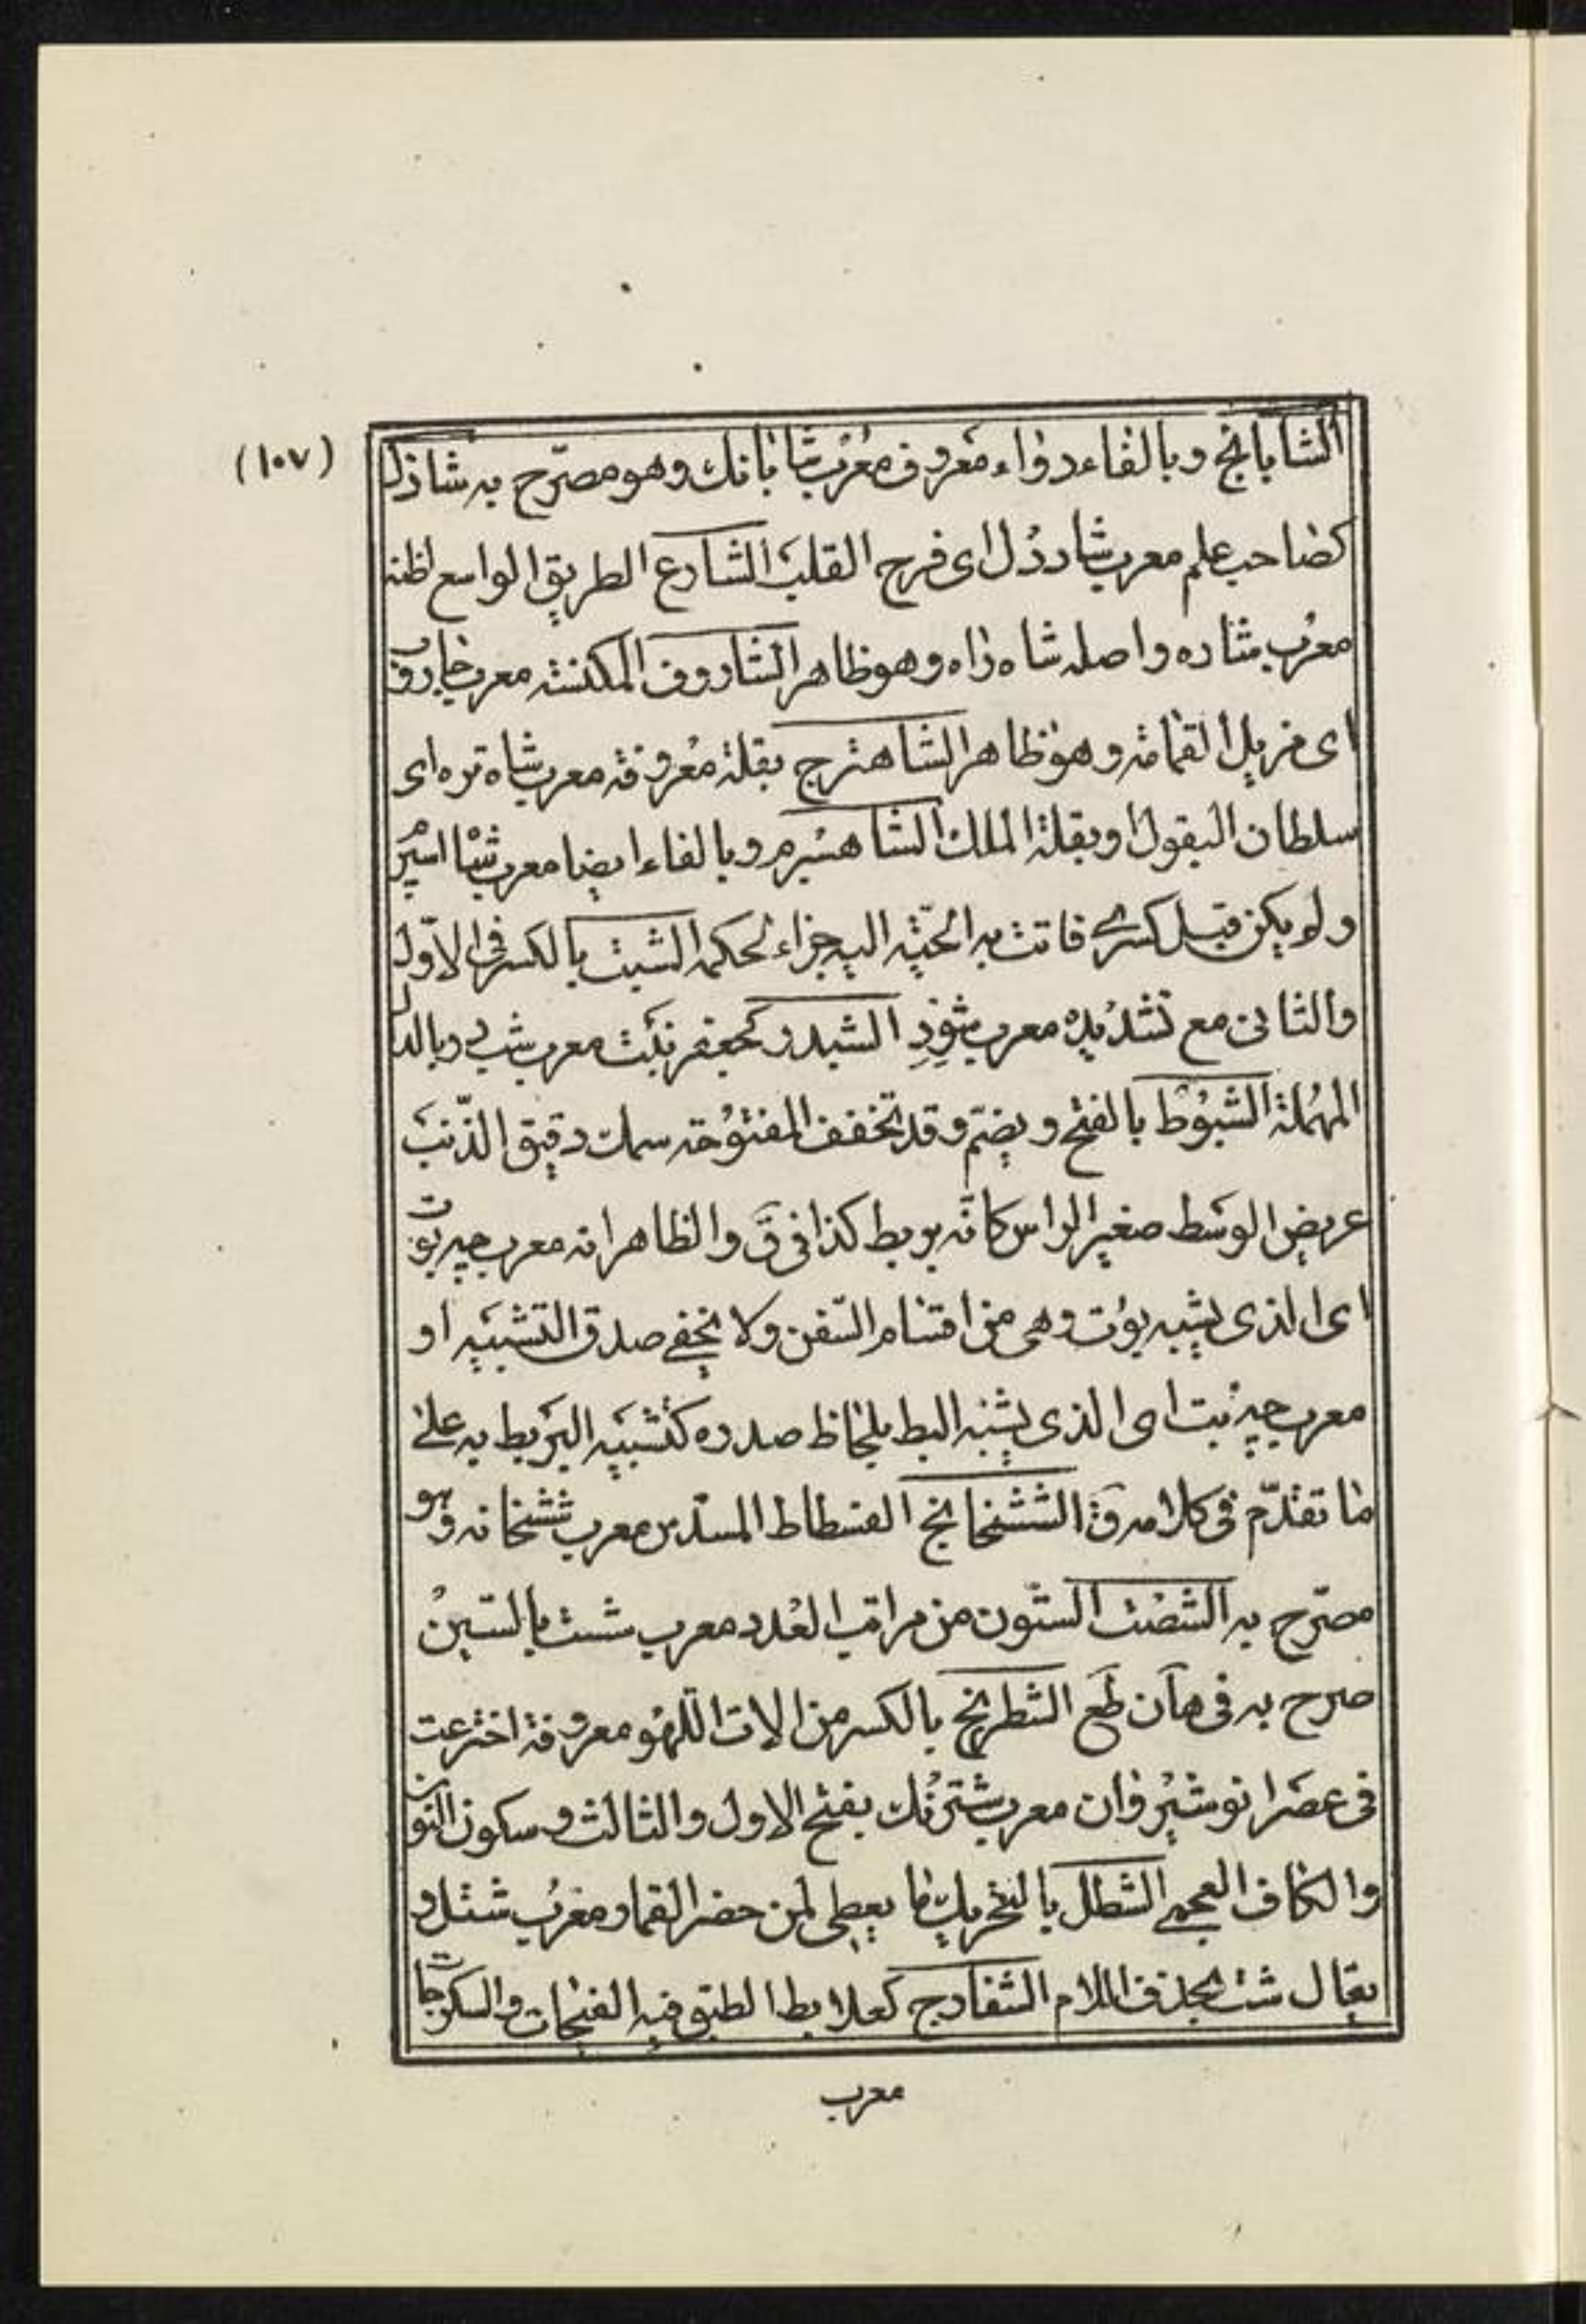 (١٠٧)
الشابانج وبالفاء دواء معروف معرب شابانك وهو مصرّح به شاذل
كصاحب علم معرب شاددل اى فرح القلب الشارع الطريق الواسع اظنه
معرب شاره واصله شاه راه وهو ظاهر الشاروف المكنسة معرب جاروب
اى مزيل القمامة وهو ظاهر الشاهترج بقلة معروفة معرب شاه تره اى
سلطان البقول او بقلة الملك الشاهسپرم وبالفاء ايضا معرب شاه اسپرم
ولو يكن قبل كسرى فاتت به الحيّة اليه جزاء لحكمه الشبث بالكسر فى الاوّل
والثانى مع تشديده معرب شوِذِ الشبدر كجعفر نبت معرب شبدر وبالدال
المهملة الشبوط بالفتح ويضمّ وقد تخفف المفتوحة سمك دقيق الذّنب
عريض الوسط صغير الراس كانّه بربط كذا فى ق والظاهر انه معرب چپه بوت
اى الذى يشبه بوت وهى من اقسام السّفن ولا يخفى صدق التشبيه او
معرب چپه بت اى الذى يشبه البط بلحاظ صدره كتشبيه البربط به على
ما تقدّم فى كلامه ق الششخانج الفسطاط المسدّس معرب ششخانه وهو
مصرّح به الشصت الستّون من مراتب العدد معرب شست بالسّين
صرح به فى هان طع الشطرنج بالكسر من الات اللهو معروفة اخترعت
فى عصر انوشيروان معرب شترنك بفتح الاول والثالث وسكون النون
والكاف العجمى الشطل بالتحريك ما يعطى لمن حضر القمار معرب شتل و
يقال شت بحذف اللام الشفارج كعلابط الطبق فيه الفيخات والسكرجات
معرب